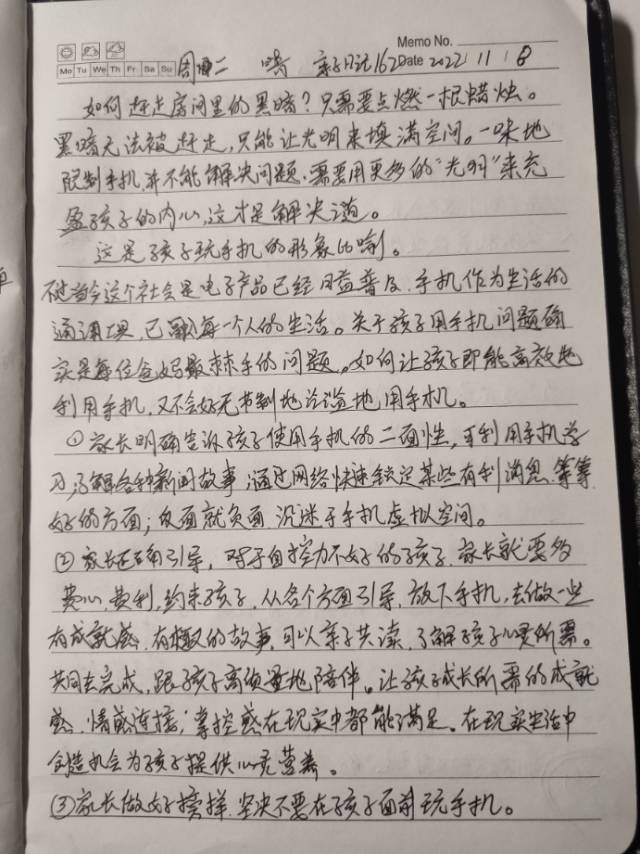 Memo No.
Mo Tu We Th Fr Sa Su 周二 晴 亲子日记162 Date 2022 11 8
如何赶走房间里的黑暗？只需要点燃一根蜡烛。
黑暗无法被赶走，只能让光明来填满空间。一味地
限制手机，并不能解决问题，需要用更多的“光明”来充
盈孩子的内心，这才是解决之道。
这是孩子玩手机的形象比喻。
当今这个社会是电子产品已经日益普及，手机作为生活的
通讯工具，已融每一个人的生活。关于孩子用手机问题确
实是每位爸妈最棘手的问题。如何让孩子即能高效地
利用手机，又不会好无节制地泛滥地用手机。
①家长明确告诉孩子使用手机的二面性，可利用手机学
习，了解各种新闻故事，通过网络快速锁定某些有利消息，等等
好的方面；反面就负面沉迷于手机虚拟空间。
②家长正确引导，对于自控力不好的孩子，家长就要多
费心，费利，约束孩子，从各个方面引导，放下手机，去做一些
有成就感，有趣的故事，可以亲子共读，了解孩子心灵所需。
共同去完成，跟孩子高质量地陪伴。让孩子成长所需的成就
感，情感连接；掌控感在现实中都能满足。在现实生活中
创造机会为孩子提供心灵营养。
③家长做好榜样，坚决不要在孩子面前玩手机。